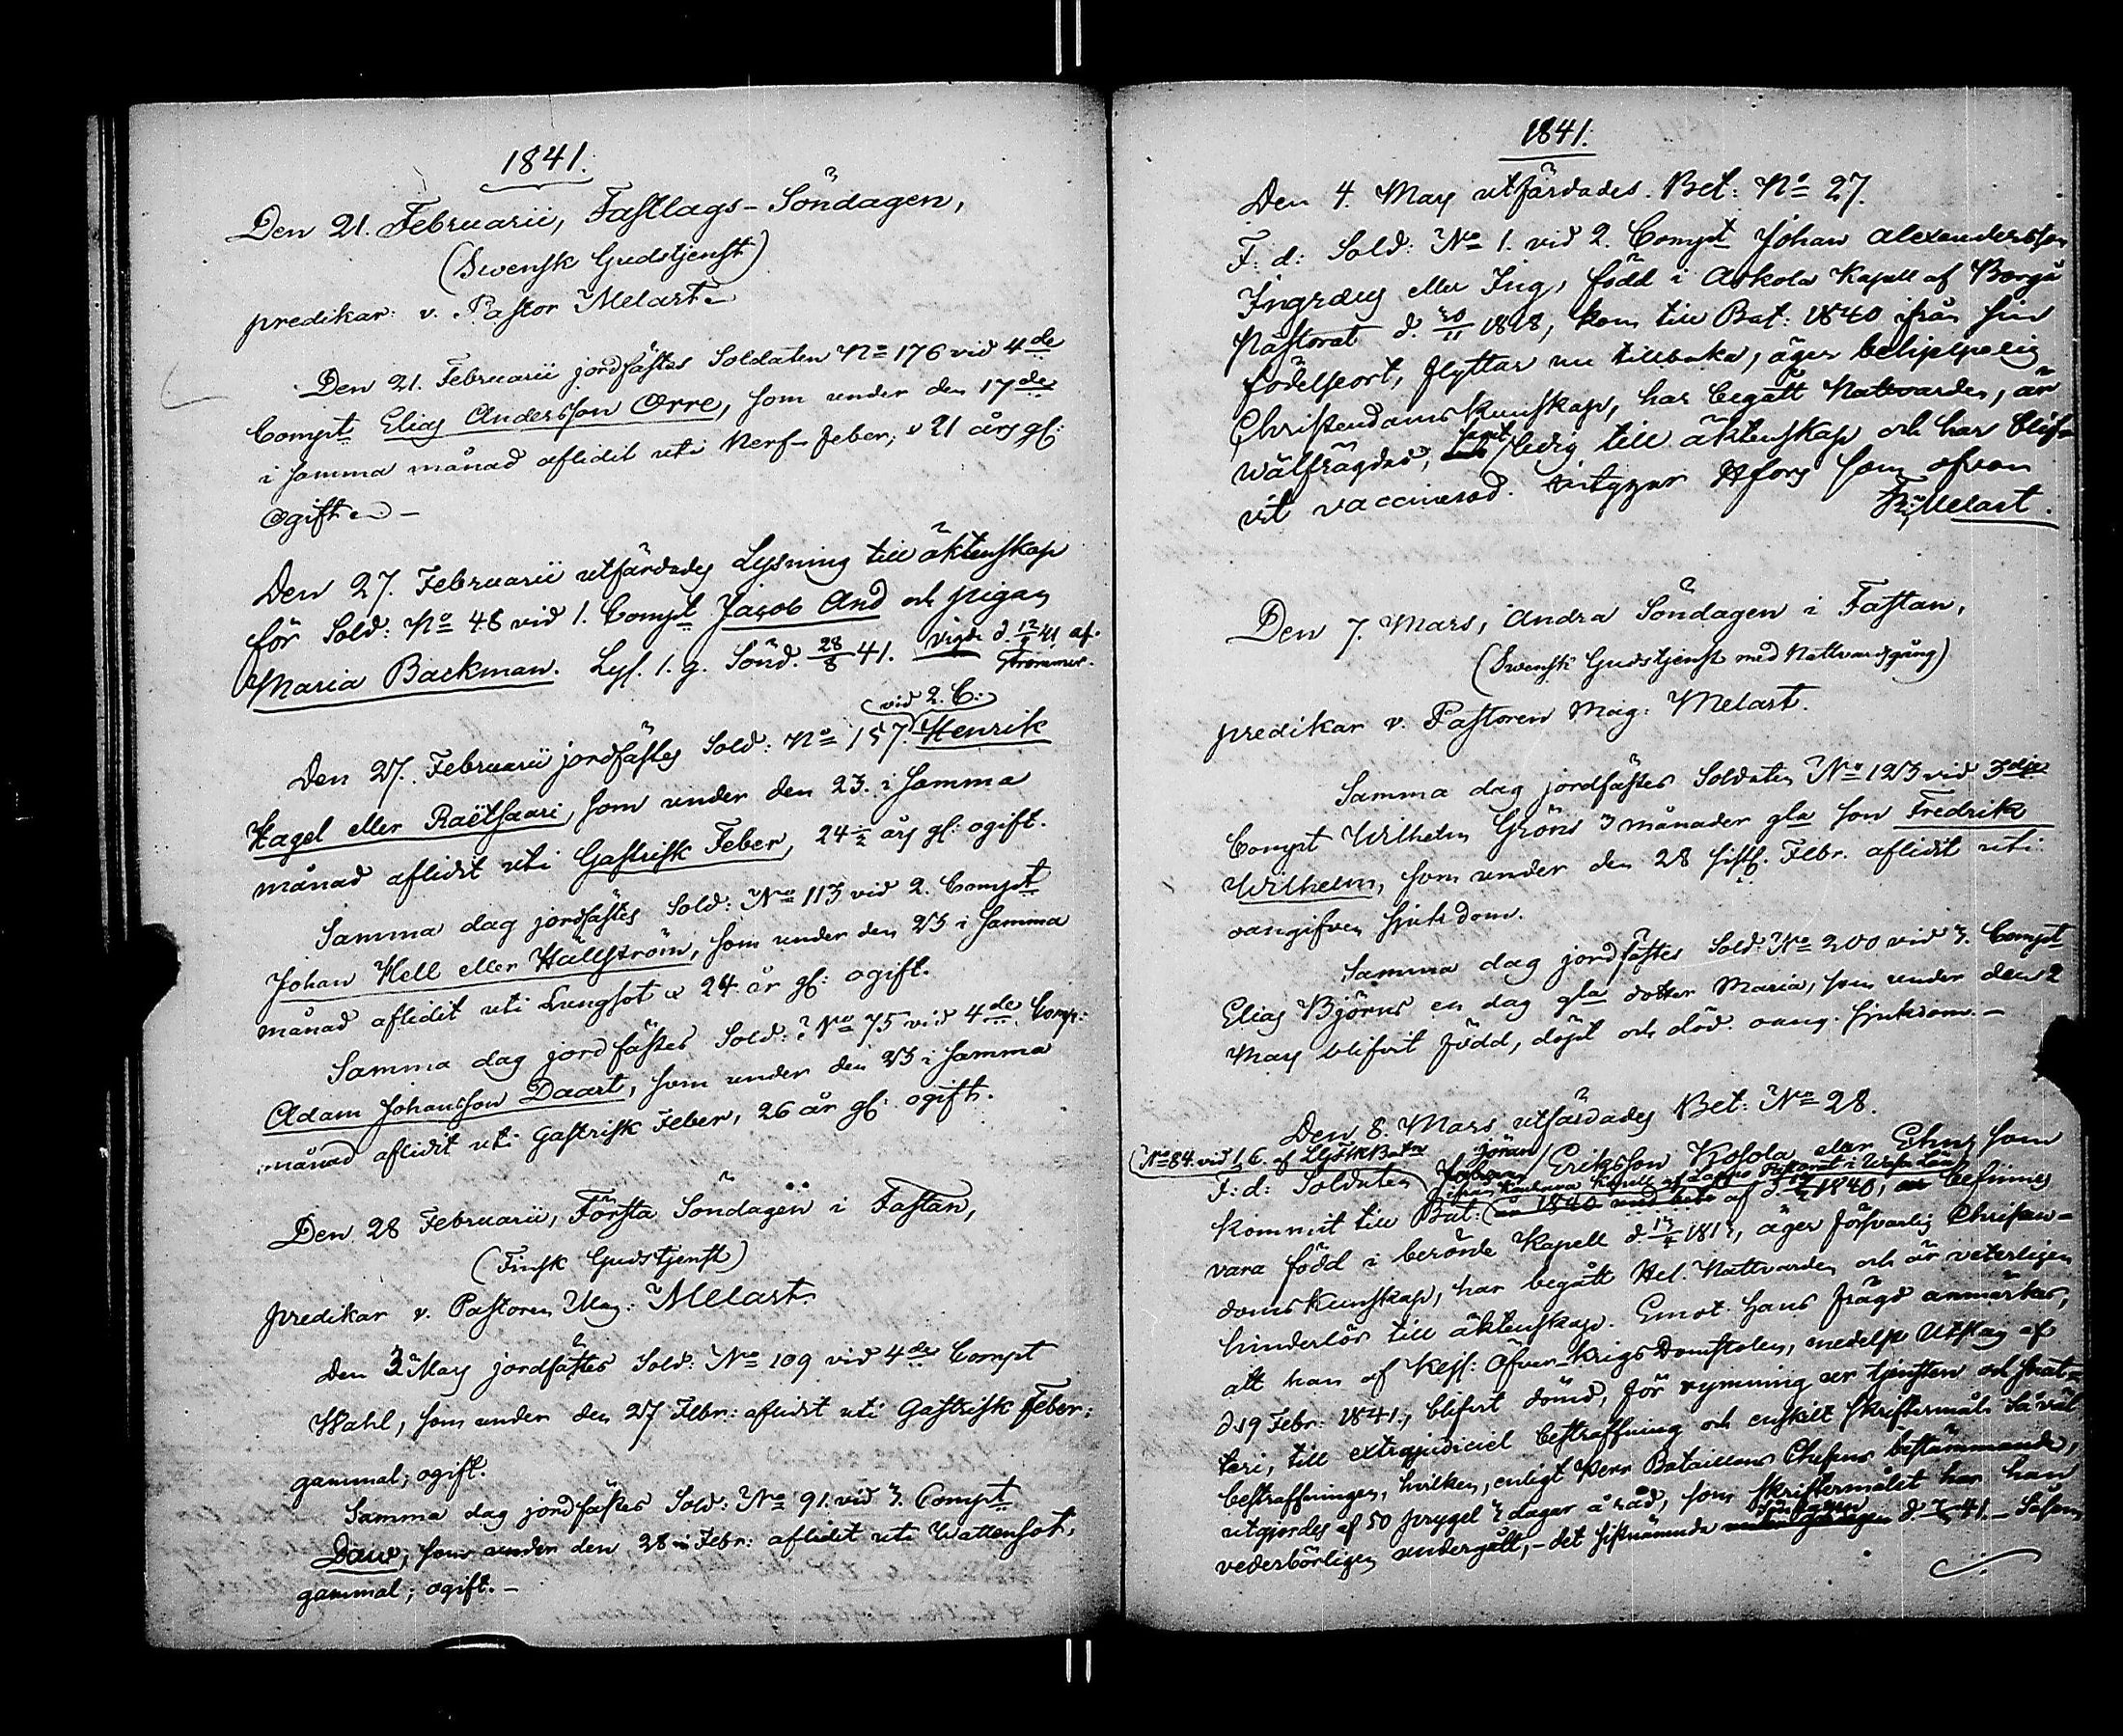 1841.
Den 21. Februarii, Fastlags-Söndagen,
(Swensk Gudstjenst)
predikar: v. Pastor Melart.
Den 21. Februarii jordfästes Soldaten No 176 vid 4de
Compt Elias Andersson Orre, som under den 17de
i samma månad aflidit uti Nerf-feber, 21 års gl:
Ogift. –
Den 27. Februarii utfärdades Lysning till äktenskap
för Sold: No 48 vid 1. Compt Jacob And och pigan
Maria Backman. Lys. 1. g. Sönd. 28/8 41. Vigde d. 12/4 41 af
Strömmer.
(vid 2. C:)
Den 27. Februarii jordfästes Sold: No 157. Henrik
Hagel eller Raëtsaari, som under den 23. i samma
månad aflidit uti Gastrisk Feber, 24 1/2 års gl: ogift.
Samma dag jordfästes Sold: No 113 vid 2. Compt
Johan Hell eller Hällström, som under den 23 i samma
månad aflidit uti Lungsot 24 år gl: ogift.
Samma dag jordfästes Sold: No 75 vid 4de Comp:
Adam Johansson Daart, som under den 23 i samma
månad aflidit uti Gastrisk Feber, 26 år gl: ogift.
Den 28 Februarii, Första Söndagen i Fastan,
(Finsk Gudstjenst)
predikar v. Pastoren Mag: Melart.
Den 3 Mars jordfästes Sold: No 109 vid 4de Compt
Wahl, som under den 27 Febr: aflidit uti Gastrisk Feber;
gammal; ogift.
Samma dag jordfästes Sold: No 91. vid 3. Compt
Daw, som under den 28 Febr: aflidit uti Wattensot,
gammal; ogift. –
1841.
Den 4. Mars utfärdades Bet: No 27.
F: d: Sold: No 1. vid 2. Compt Johan Alexandersson
Ingrdes eller Ing, född i Askola Kapell af Borgå
Pastorat d. 20/11 1818, kom till Bat: 1840 ifrån sin
födelseort, flyttar nu tillbaka, äger behjelpelig
Christendoms kunskap, har begått Nattvarden, är
wälfrägdad, samt ledig till äktenskap och har blif-
vit vaccinerad. Hfors som ofvan
Melart.
Den 7. Mars, Andra Söndagen i Fastan,
(Swensk Gudstjenst med Nattvardsgång)
predikar v. Pastoren Mag: Melart.
Samma dag jordfästes Soldaten No 123 vid 3dje
Compt Wilhelm Gröns 3 månader gla son Fredrik
Wilhelm, som under den 28 sistl. Febr. aflidit uti
oangifven sjukdom.
Samma dag jordfästes Sold: No 200 vid 3. Compt
Elias Björns en dag gla dotter Maria, som under den 2
Mars blifvit född, döpt och död. oang. sjukdom. –
Den 8. Mars utfärdades Bet: No 28.
(No 84. vid 1. C. af Bat:
Jöran
F: d: Soldaten Eriksson Kosola eller som
ifrån Kapell af Lappo Pastorat i Wasa Län
kommit till Bat: 1840, befinnes
vara född i berörde Kapell d. 13/4 1813, äger försvarlig Christen-
doms kunskap, har begått Hel. Nattvarden och är veterligen
hinderlös till äktenskap. Emot hans frägd anmärkes,
att han af Kejs: Öfver-Krigs Domstolen, medelst Utslag af
d. 19 Febr: 1841, blifvit dömd, för rymning ur tjensten och snat-
teri, till extrajudiciel bestraffning och enskilt skriftermål. Så väl
bestraffningen, hvilken, enligt Herr Bataillons Chefens bestämmande,
utgjordes af 50 prygel 2 dagar å rad, som skriftermålet har han
vederbörligen undergått, – det sistnämnde 41. –